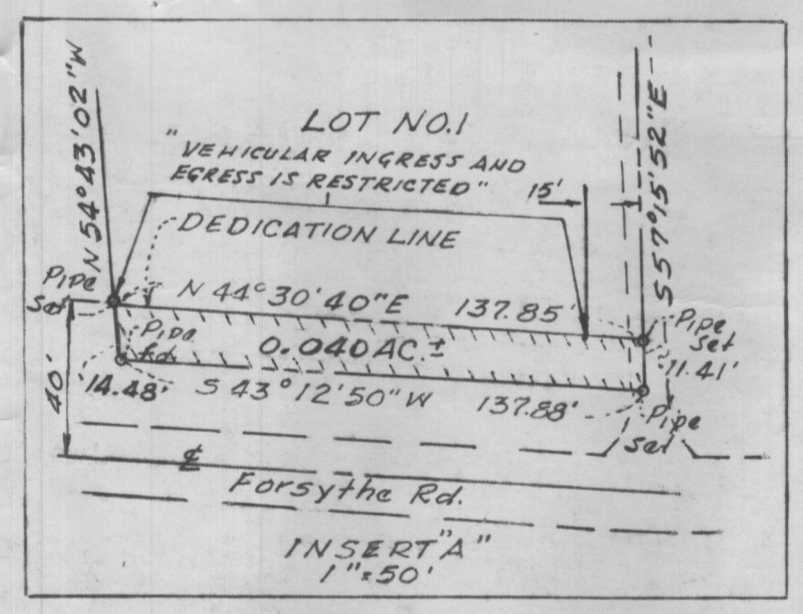 N 54°43'02"W
LOT NO.1
"VEHICULAR INGRESS AND
EGRESS IS RESTRICTED"
15'
S 57°15'52"E
DEDICATION LINE
Pipe
set
N 44°30'40"E
137.85'
Pipe
set
Pipe
fd.
0.040 AC.±
11.41'
40'
14.48'
S 43°12'50"W
137.88'
Pipe
set
℄
Forsythe Rd.
INSERT "A"
1"=50'